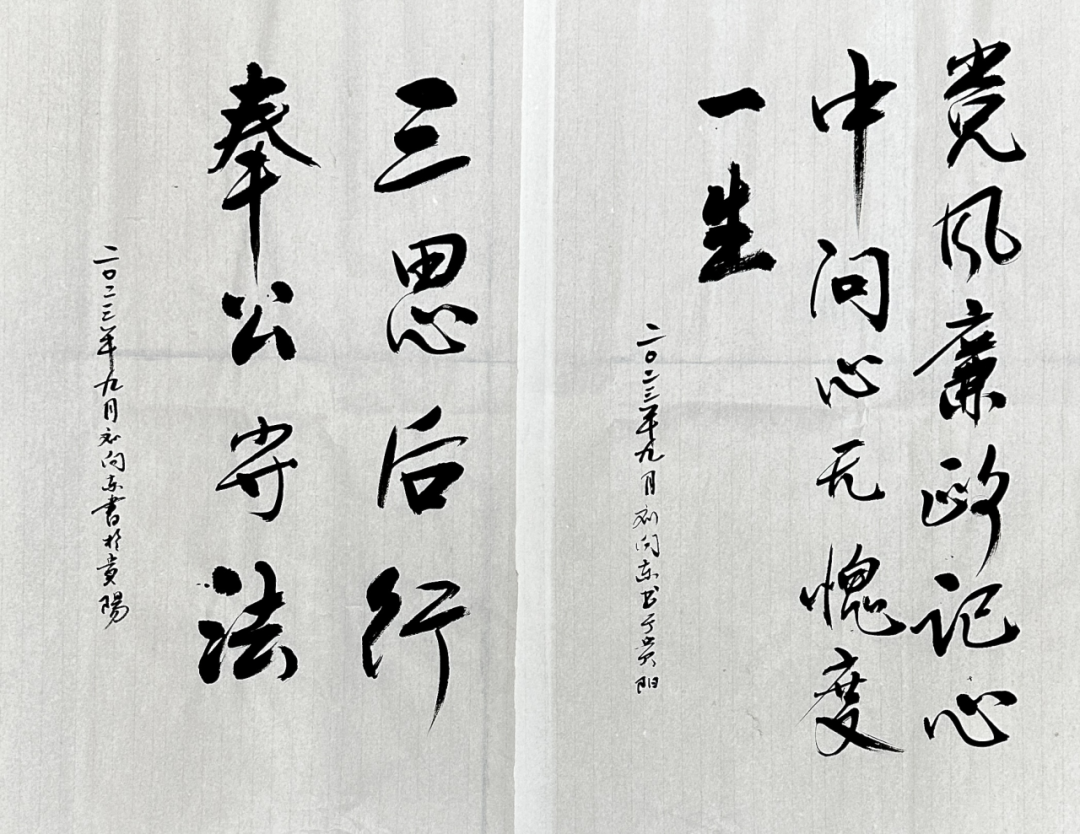 党风廉政记心
中问心无愧度
一生
二〇二三年九月向东书于贵阳
三思后行
奉公守法
二〇二三年九月向东書於貴陽